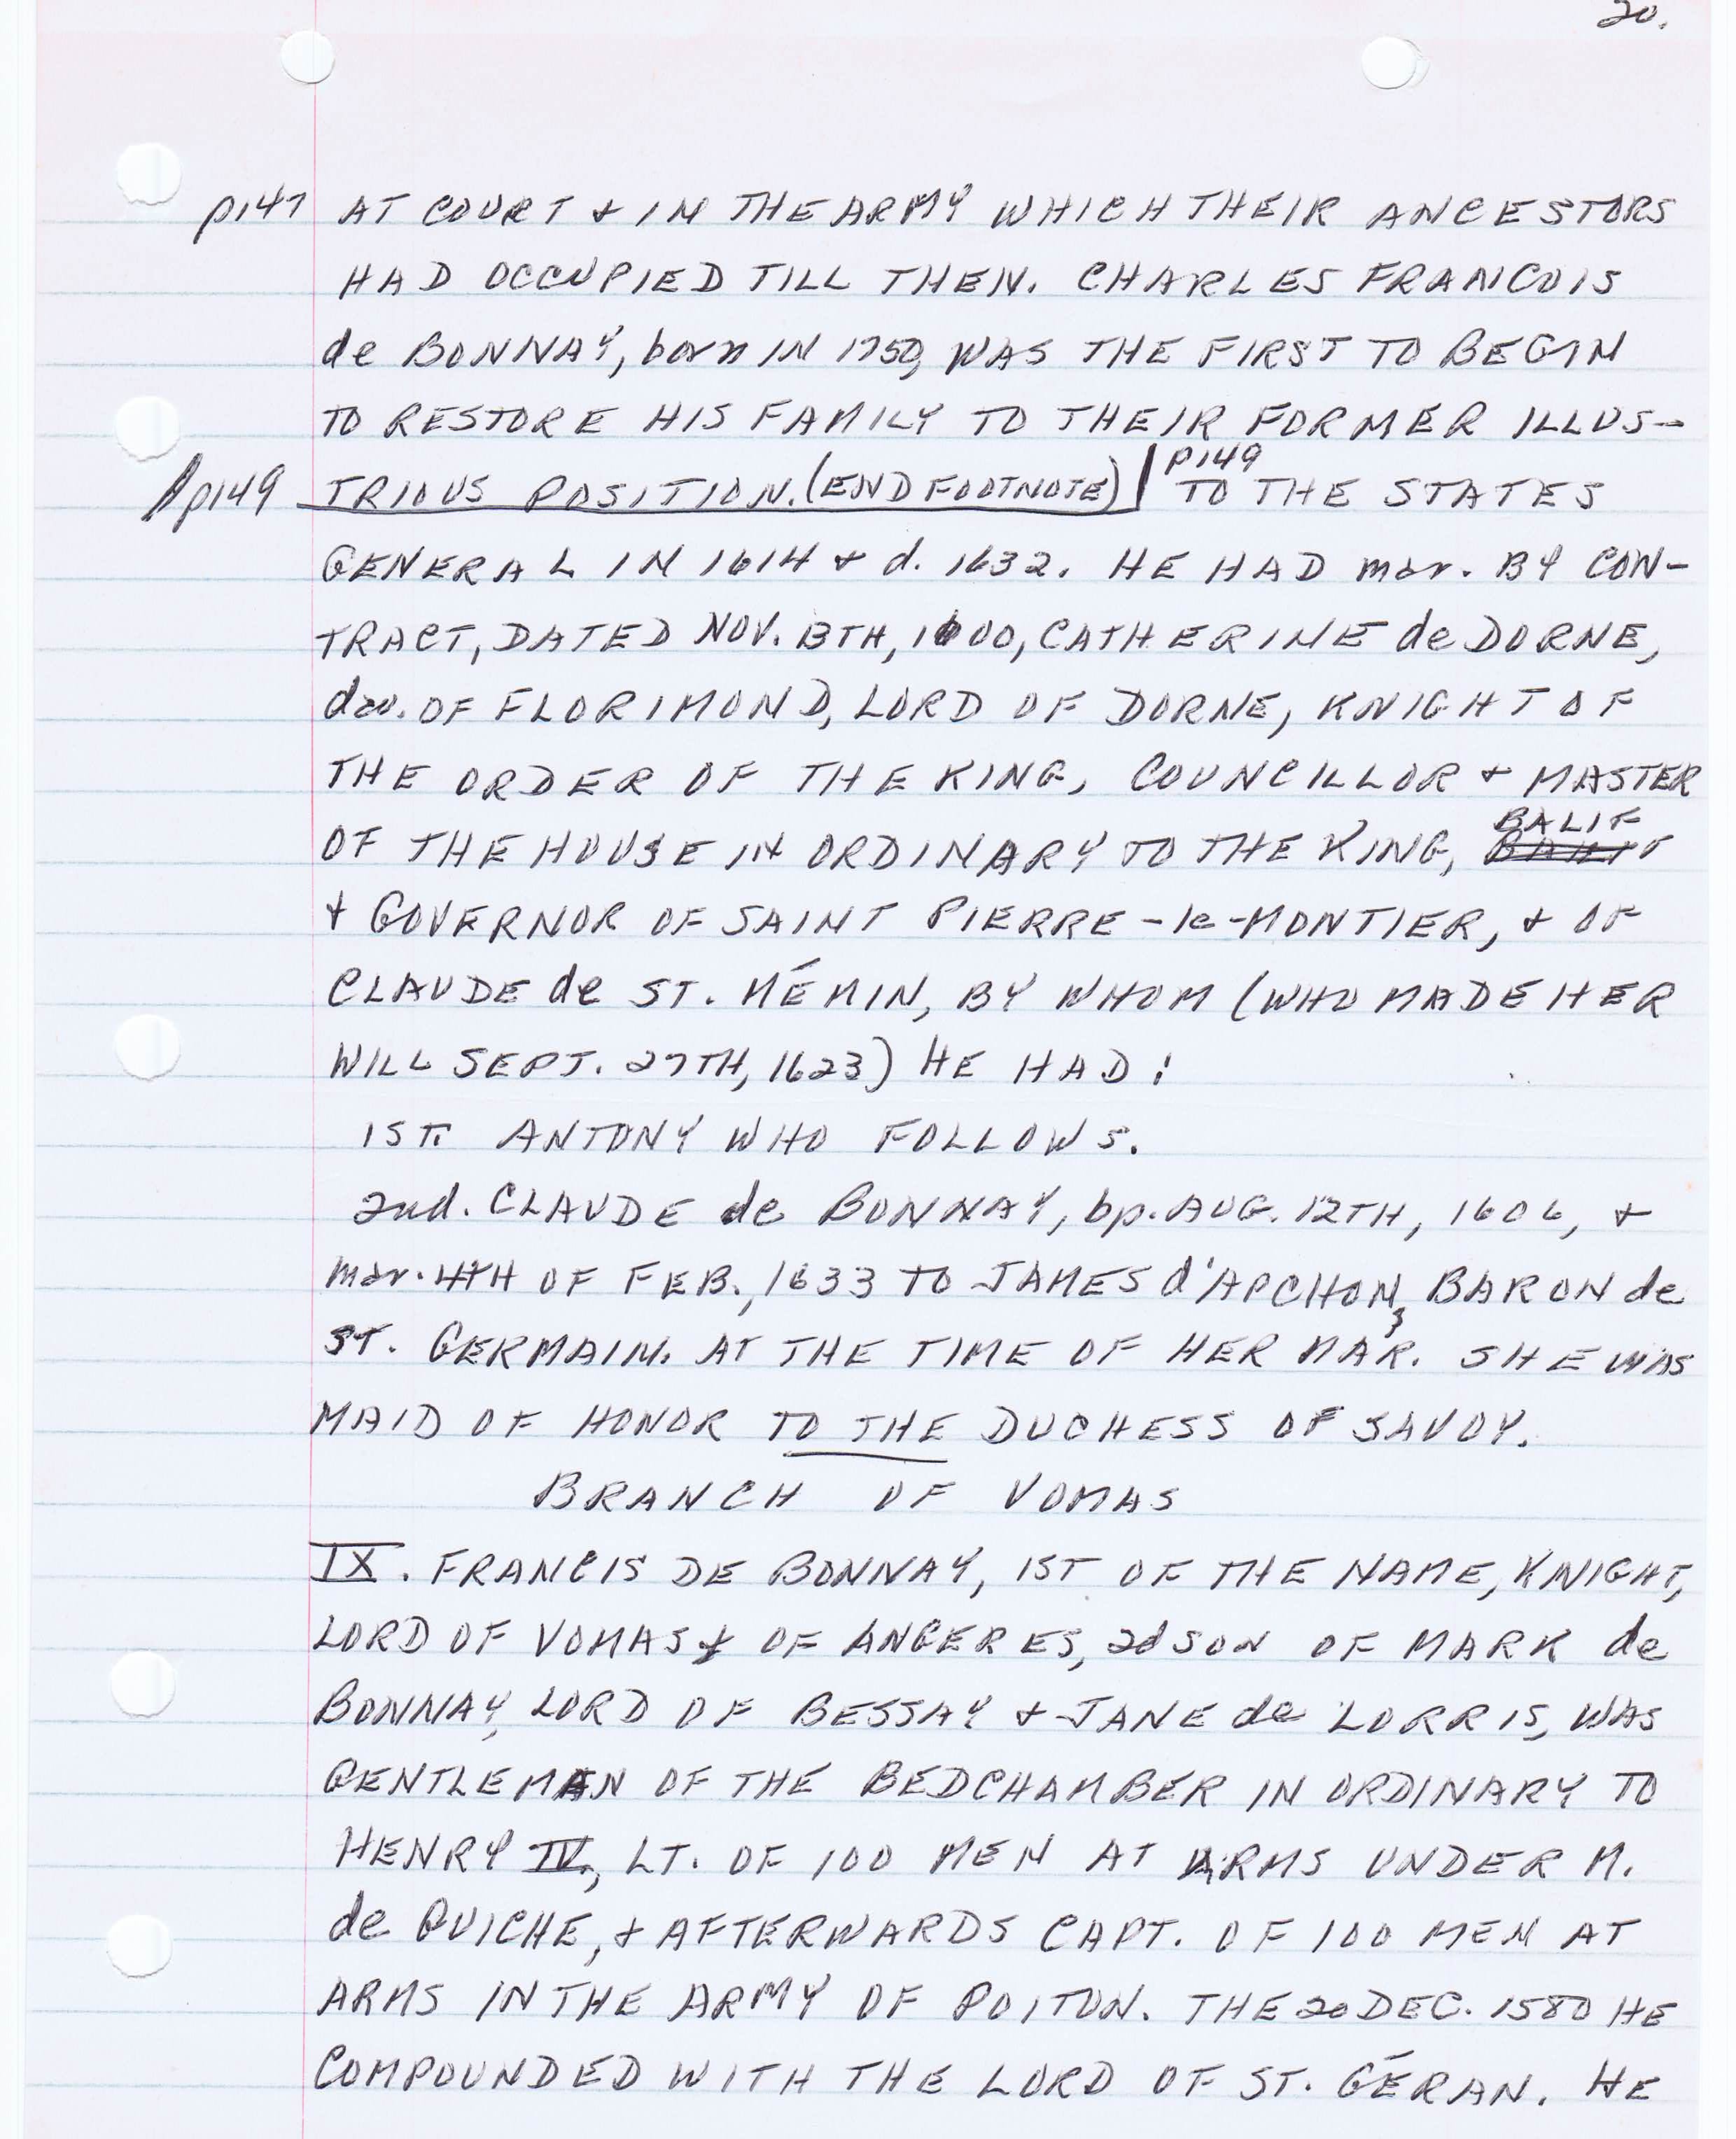 20.
p147 AT COURT & IN THE ARMY WHICH THEIR ANCESTORS
HAD OCCUPIED TILL THEN. CHARLES FRANCOIS
de BONNAY, born IN 1750, WAS THE FIRST TO BEGIN
TO RESTORE HIS FAMILY TO THEIR FORMER ILLUS-
p149 TRIOUS POSITION. (END FOOTNOTE) | p149 TO THE STATES
GENERAL IN 1614 & d. 1632. HE HAD mar. BY CON-
TRACT, DATED NOV. 13TH, 1600, CATHERINE de DORNE,
dau. OF FLORIMOND, LORD OF DORNE, KNIGHT OF
THE ORDER OF THE KING, COUNCILLOR & MASTER
OF THE HOUSE IN ORDINARY TO THE KING, BALIF
& GOVERNOR OF SAINT PIERRE-le-MONTIER, & OF
CLAUDE de ST. MÉMIN, BY WHOM (WHO MADE HER
WILL SEPT. 27TH, 1623) HE HAD:
1ST. ANTONY WHO FOLLOWS.
2nd. CLAUDE de BONNAY, bp. AUG. 12TH, 1606, &
mar. 4TH OF FEB., 1633 TO JAMES d'APCHON, BARON de
ST. GERMAIN. AT THE TIME OF HER MAR. SHE WAS
MAID OF HONOR TO THE DUCHESS OF SAVOY.
BRANCH OF VOMAS
IX. FRANCIS DE BONNAY, 1ST OF THE NAME, KNIGHT,
LORD OF VOMAS & OF ANGERES, 2d SON OF MARK de
BONNAY, LORD OF BESSAY & JANE de LORRIS, WAS
GENTLEMAN OF THE BEDCHAMBER IN ORDINARY TO
HENRY IV., LT. OF 100 MEN AT ARMS UNDER M.
de GUICHE, & AFTERWARDS CAPT. OF 100 MEN AT
ARMS IN THE ARMY OF POITON. THE 20 DEC. 1580 HE
COMPOUNDED WITH THE LORD OF ST. GÉRAN. HE